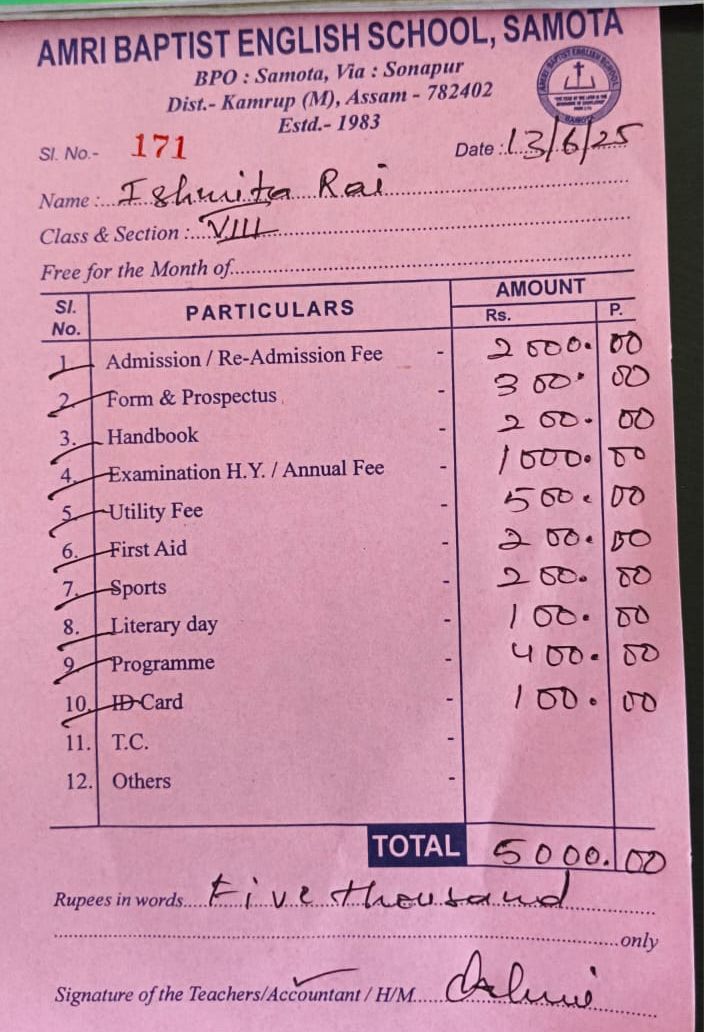 AMRI BAPTIST ENGLISH SCHOOL, SAMOTA
BPO : Samota, Via : Sonapur
Dist.- Kamrup (M), Assam - 782402
Estd.- 1983
AMRI BAPTIST ENGLISH SCHOOL
SAMOTA
Sl. No.- 171 Date : 13/6/25
Name : Ishmita Rai
Class & Section : VIII
Free for the Month of
Sl. No. PARTICULARS AMOUNT
Rs. P.
1. Admission / Re-Admission Fee - 2000. 00
2. Form & Prospectus - 300. 00
3. Handbook - 200. 00
4. Examination H.Y. / Annual Fee - 1000. 00
5. Utility Fee - 500. 00
6. First Aid - 200. 00
7. Sports - 200. 00
8. Literary day - 100. 00
9. Programme - 400. 00
10. ID Card - 100. 00
11. T.C. -
12. Others -
TOTAL 5000.00
Rupees in words Five thousand
only
Signature of the Teachers/Accountant / H/M.